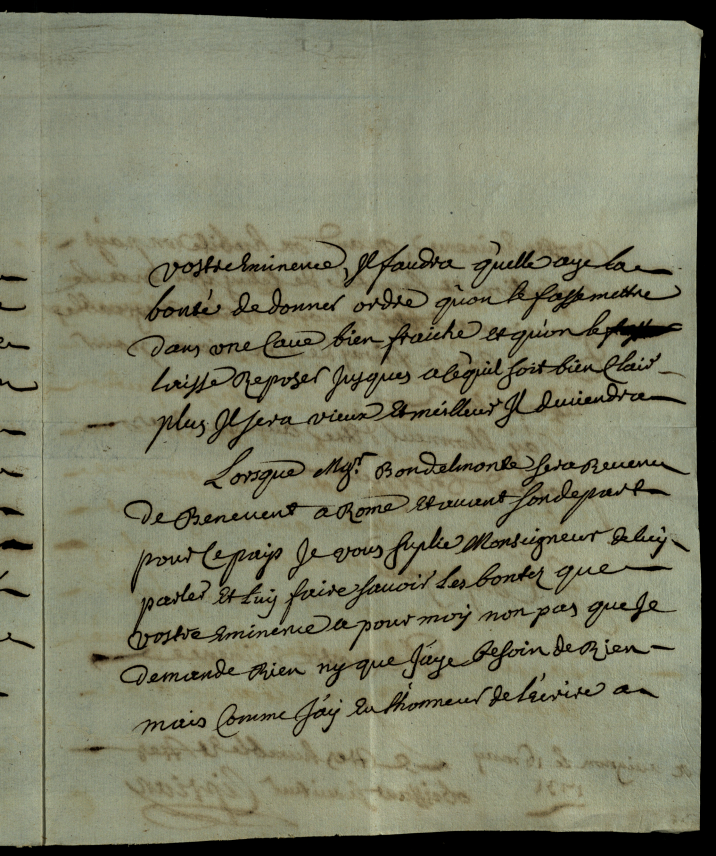 vostre Eminence, Il faudra quelle aye la
bonté de donner ordre qu'on le fasse mettre
dans une Cave bien fraiche et qu'on le
laisse Reposer Jusques a ce qu'il soit bien Clair
plus Il sera vieux Et meilleur Il deviendra
Lorsque Mgr. Bondelmonte sera Revenu
de Benevent a Rome Et avant son depart
pour ce pays Je vous suplie Monseigneur de luy
parler Et luy faire savoir Les bontez que
vostre Eminence a pour moy non pas que Je
demande Rien ny que J'aye besoin de Rien
mais Comme J'ay Eu l'honneur de l'écrire a